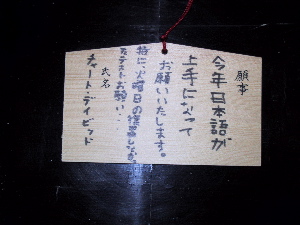 願事
今年日本語が
上手になって
お願いいたします。
特に、火曜日の復習しなが
らテストお願い・・
氏名
チャート・デイビッド